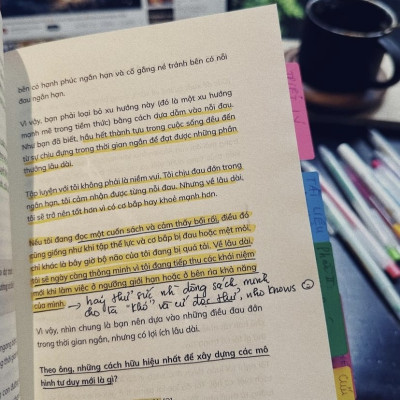 bên có hạnh phúc ngắn hạn và cố gắng né tránh bên có nỗi
đau ngắn hạn.
Vì vậy, bạn phải loại bỏ xu hướng này (đó là một xu hướng
mạnh mẽ trong tiềm thức) bằng cách dựa dẫm vào nỗi đau.
Như bạn đã biết, hầu hết thành tựu trong cuộc sống đều đến
từ sự chịu đựng trong thời gian ngắn để đạt được những phần
thưởng lâu dài.
Tập luyện với tôi không phải là niềm vui. Tôi chịu đau đớn trong
ngắn hạn, tôi cảm nhận được từng nỗi đau. Nhưng về lâu dài,
tôi sẽ trở nên tốt hơn vì có cơ bắp hay khoẻ mạnh hơn.
Nếu tôi đang đọc một cuốn sách và cảm thấy bối rối, điều đó
cũng giống như khi tập thể lực và cơ bắp bị đau hoặc mệt mỏi,
chỉ khác là bây giờ bộ não của tôi đang bị quá tải. Về lâu dài,
tôi sẽ ngày càng thông minh vì tôi đang tiếp thu các khái niệm
mới khi làm việc ở ngưỡng giới hạn hoặc ở bên rìa khả năng
của mình. → hãy thử sức với dòng sách mình
cho là "khó" và cứ đọc thử, who knows
Vì vậy, nhìn chung là bạn nên dựa vào những điều đau đớn
trong thời gian ngắn, nhưng có lợi ích lâu dài.
Theo ông, những cách hữu hiệu nhất để xây dựng các mô
hình tư duy mới là gì?